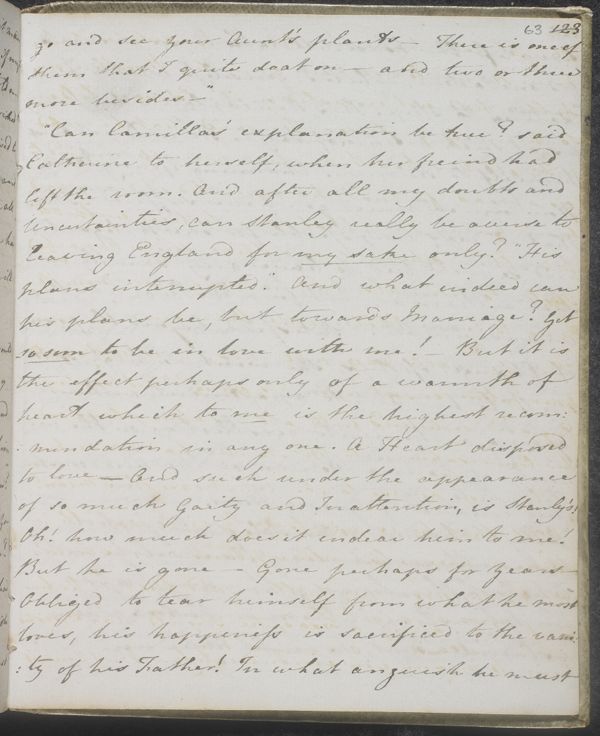 63 123
go and see your Aunt's plants — There is one of
them that I quite doat on — and two or three
more besides —"
"Can Camilla's explanation be true? said
Catherine to herself, when her freind had
left the room. And after all my doubts and
Uncertainties, can Stanley really be averse to
Leaving England for my sake only? "His
plans interrupted." And what indeed can
his plans be, but towards Marriage? Yet
so soon to be in love with me! — But it is
the effect perhaps only of a warmth of
heart which to me is the highest recom:
:mendation in any one. A Heart disposed
to love — And such under the appearance
of so much Gaity and Inattention, is Stanly's!
Oh! how much does it endear him to me!
But he is gone — Gone perhaps for Years —
Obliged to tear himself from what he most
loves, his happiness is sacrificed to the vani
:ty of his Father! In what anguish he must